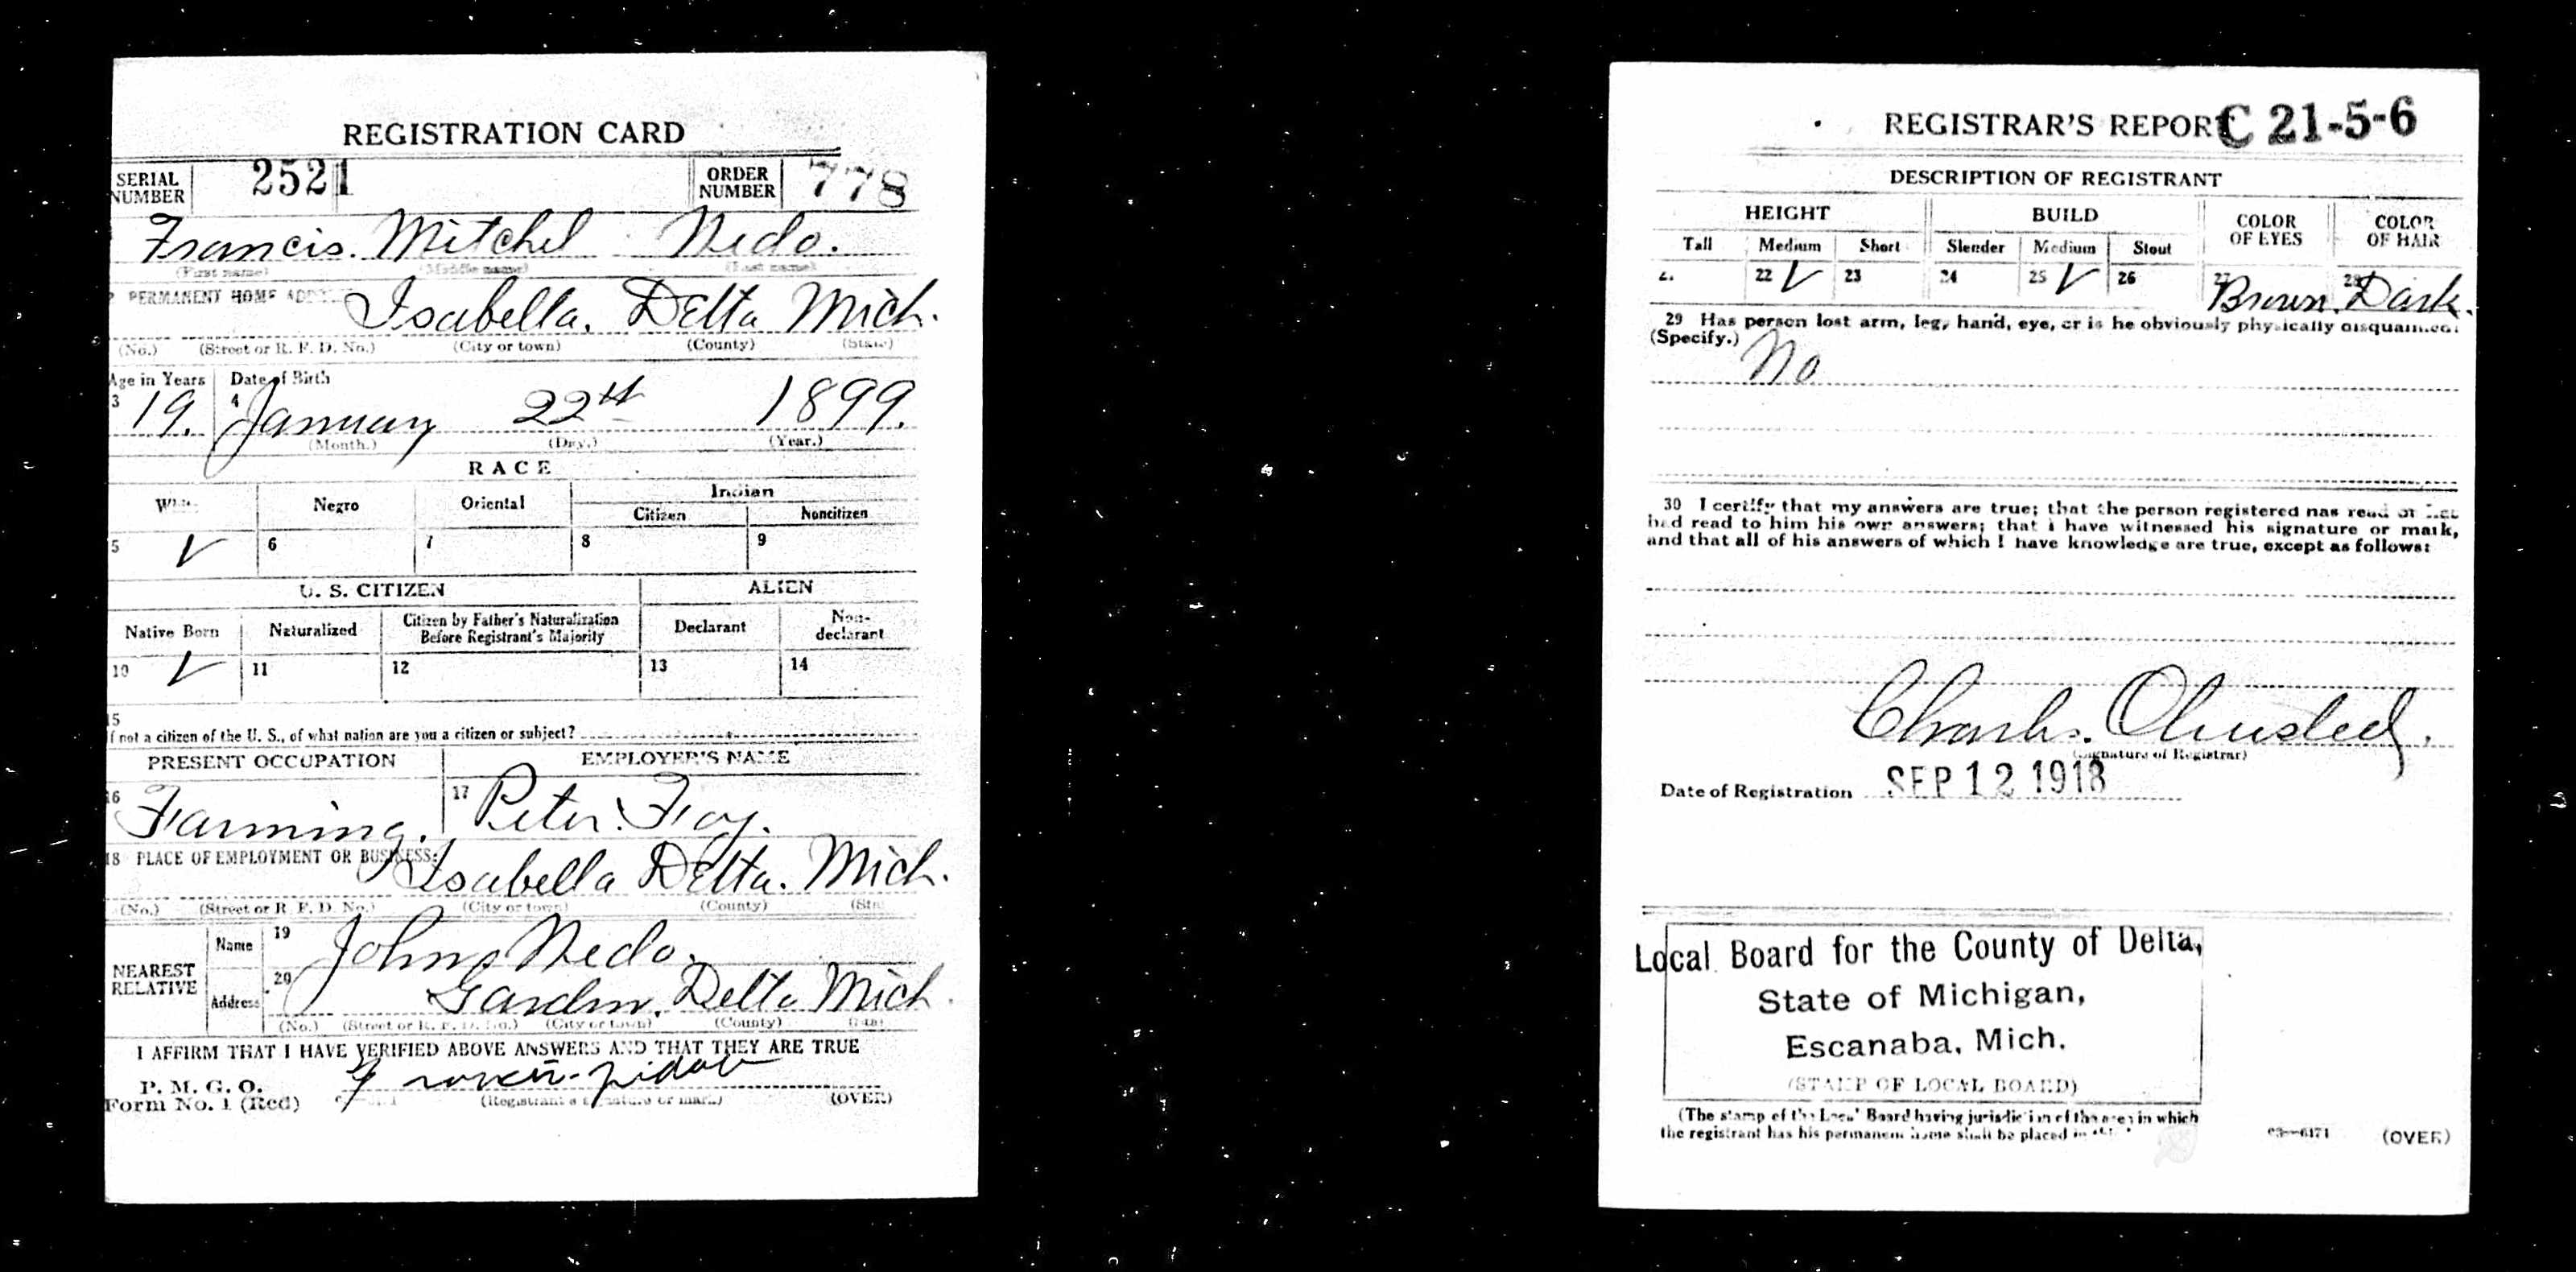 REGISTRATION CARD
SERIAL NUMBER 2521 ORDER NUMBER 778
Francis. Mitchel Nedo.
(First name) (Middle name) (Last name)
PERMANENT HOME Isabella. Delta Mich.
(No.) (Street or R. F. D. No.) (City or town) (County) (State)
Age in Years Date of Birth
3 19. 4 January 22nd 1899.
(Month.) (Day.) (Year.)
RACE
White Negro Oriental Indian
Citizen Noncitizen
5 ✓ 6 7 8 9
U. S. CITIZEN ALIEN
Native Born Naturalized Citizen by Father's Naturalization Before Registrant's Majority Declarant Non-declarant
10 ✓ 11 12 13 14
15
If not a citizen of the U. S., of what nation are you a citizen or subject?
PRESENT OCCUPATION EMPLOYER'S NAME
16 Farming. 17 Peter. Foy.
18 PLACE OF EMPLOYMENT OR BUSINESS:
Isabella Delta. Mich.
(No.) (Street or R. F. D. No.) (City or town) (County) (State)
NEAREST RELATIVE Name 19 John Nedo.
Address 20 Garden. Delta Mich.
(No.) (Street or R. F. D. No.) (City or town) (County) (State)
I AFFIRM THAT I HAVE VERIFIED ABOVE ANSWERS AND THAT THEY ARE TRUE
P. M. G. O.
Form No. 1 (Red) (Registrant's signature or mark) (OVER)
REGISTRAR'S REPORT C 21-5-6
DESCRIPTION OF REGISTRANT
HEIGHT BUILD COLOR OF EYES COLOR OF HAIR
Tall Medium Short Slender Medium Stout
21 22 ✓ 23 24 25 ✓ 26 27 Brown. 28 Dark.
29 Has person lost arm, leg, hand, eye, or is he obviously physically disqualified?
(Specify.) No
30 I certify that my answers are true; that the person registered has read or has
had read to him his own answers; that I have witnessed his signature or mark,
and that all of his answers of which I have knowledge are true, except as follows:
Charles. Olmsted.
(Signature of Registrar)
Date of Registration SEP 12 1918
Local Board for the County of Delta,
State of Michigan,
Escanaba, Mich.
(STAMP OF LOCAL BOARD)
(The stamp of the Local Board having jurisdiction of the area in which
the registrant has his permanent home shall be placed in
03—6171 (OVER)